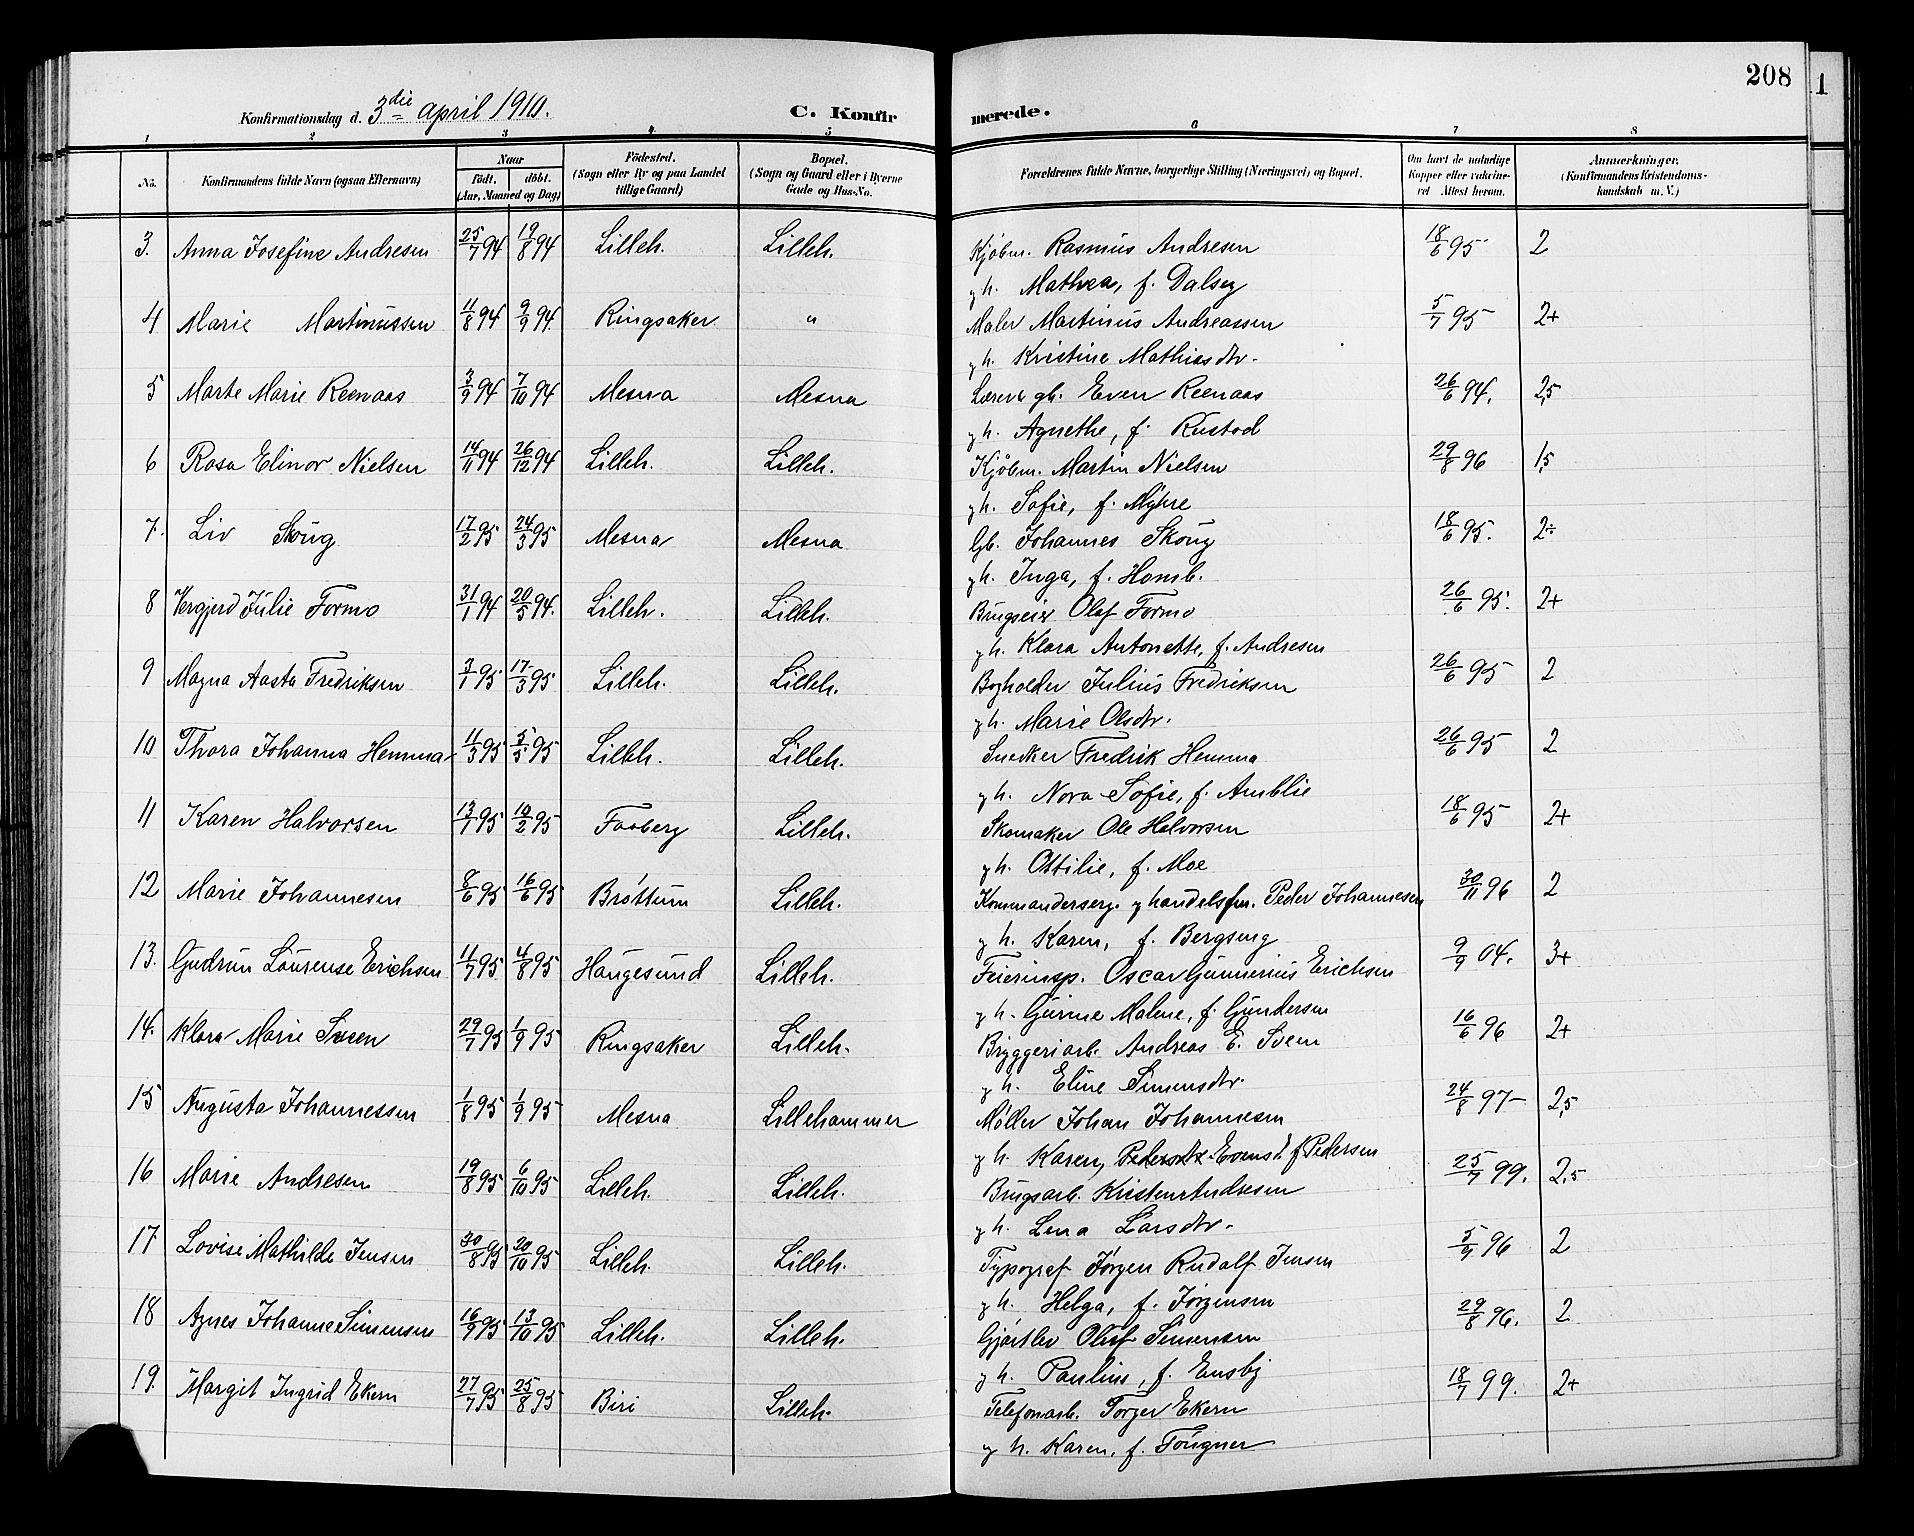 208
1
Konfirmationsdag d. 3die april 1910.
C. Konfirmerede.
1 2 3 4 5 6 7 8
No.
Konfirmandens fulde Navn (ogsaa Efternavn)
Naar
födt. döbt.
(Aar, Maaned og Dag)
Födested.
(Sogn eller By og paa Landet
tillige Gaard)
Bopæl.
(Sogn og Gaard eller i Byerne
Gade og Hus-No.
Forældrenes fulde Navne, borgerlige Stilling (Næringsvei) og Bopæl.
Om havt de naturlige
Kopper eller vakcine-
ret Attest herom.
Anmerkninger.
(Konfirmandens Kristendoms-
kundskab m. V.)
3. Anna Josefine Andresen 25/7 94 19/8 94 Lilleh. Lilleh. Kjøbm. Rasmus Andresen 18/6 95 2
g h. Mathea, f. Dalseg
4 Marie Martinussen 11/8 94 9/9 94. Ringsaker " Maler Martinus Andreassen 5/7 95 2+
g h. Kristine Mathiasdtr.
5 Marte Marie Reenaas 3/9 94 7/10 94 Mesna Mesna Lærer & gb. Even Reenaas 26/6 94. 2,5
g h. Agnethe, f. Rustad
6 Rosa Elinor Nielsen 14/11 94 26/12 94 Lilleh. Lilleh. Kjøbm. Martin Nielsen 29/8 96 1,5
g h. Sofie, f. Myhre
7. Liv Skoug 17/2 95 24/3 95 Mesna Mesna Gb. Johannes Skoug 18/6 95. 2÷
g h. Inga, f. Homb.
8 Vergjerd Julie Formo 31/1 94 20/5 94. Lilleh. Lilleh. Brugseier Olaf Formo 26/6 95. 2+
g h. Klara Antonette, f. Andresen
9 Magna Aasta Fredriksen 3/1 95 17/3 95 Lilleh. Lilleh. Bogholder Julius Fredriksen 26/6 95 2
g h. Marie Olsdtr.
10 Thora Johanna Hemma 11/3 95 5/5 95 Lilleh. Lilleh. Snedker Fredrik Hemma 26/6 95 2
g h. Nora Sofie, f. Amblie
11 Karen Halvorsen 13/1 95 10/2 95 Faaberg Lilleh. Skomaker Ole Halvorsen 18/6 95 2+
g h. Ottilie, f. Moe
12 Marie Johannesen 8/6 95 16/6 95 Brøttum Lilleh. Kommanderserg. g handelsfm. Peder Johannesen 30/11 96 2
g h. Karen, f. Bergseng
13. Gudrun Laurense Erichsen 11/7 95 4/8 95 Haugesund Lilleh. Feierinsp. Oscar Gunnerius Erichsen 9/9 04. 3+
g h. Gurine Malene, f. Gundersen
14. Klara Marie Sveen 29/7 95 1/9 95 Ringsaker Lilleh. Bryggeriarb. Andreas E. Sveen 16/6 96 2+
g h. Eline Simensdtr.
15 Augusta Johannessen 1/8 95 1/9 95 Mesna Lillehammer Møller Johan Johannesen 24/8 97 2,5
g h. Karen, Pedersdtr. f Pedersen
16 Marie Andresen 19/8 95 6/10 95 Lilleh. Lilleh. Brugsarb. Kristen Andresen 25/7 99. 2,5
g h. Lena Larsdtr.
17. Lovise Mathilde Jensen 30/8 95 20/10 95 Lilleh. Lilleh. Typograf Jørgen Rudolf Jensen 5/9 96 2
g h. Helga, f. Jørgensen
18 Agnes Johanne Simensen 16/9 95 13/10 95 Lilleh. Lilleh. Gjørtler Oluf Simensen 29/8 96. 2
g h. Pauline, f. Ensby
19. Margit Ingrid Ekern 27/7 95 25/8 95 Biri Lilleh. Telefonarb. Torger Ekern 18/7 99. 2+
g h. Karen, f. Fougner